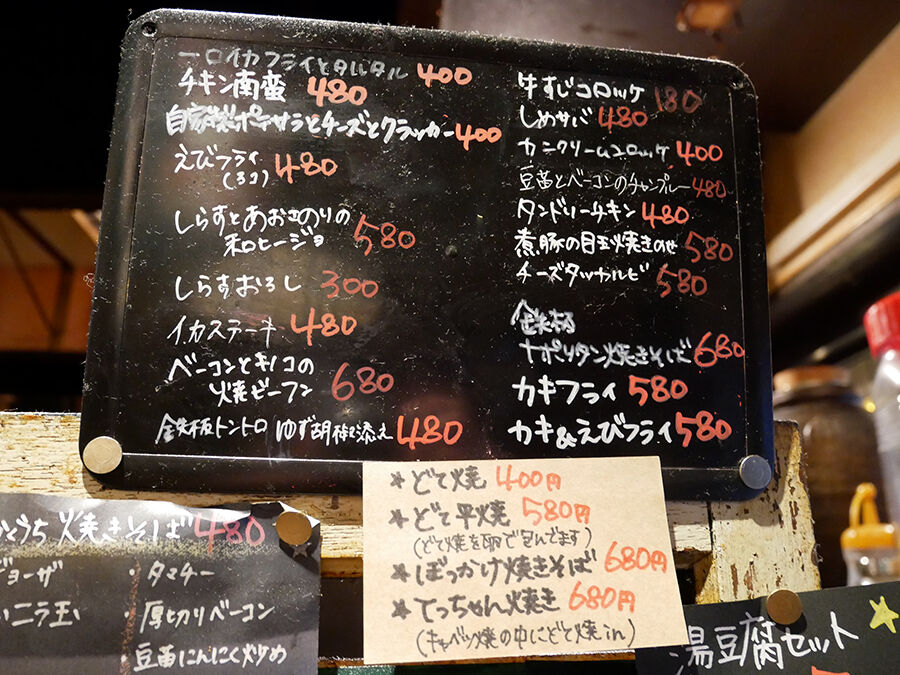 一口イカフライとタルタル 400
チキン南蛮 480
自家製ポテサラとチーズとクラッカー 400
えびフライ 480
(3コ)
しらすとあおさのりの
和ヒージョ 580
しらすおろし 300
イカステーキ 480
ベーコンとキノコの
焼ビーフン 680
鉄板トントロ ゆず胡椒添え 480
牛すじコロッケ 180
しめサバ 480
カニクリームコロッケ 400
豆苗とベーコンのチャンプルー 480
タンドリーチキン 480
煮豚の目玉焼きのせ 580
チーズタッカルビ 580
鉄板
ナポリタン焼きそば 680
カキフライ 580
カキ&えびフライ 580
* どて焼 400円
* どて平焼 580円
(どて焼を卵で包んでます)
* ぼっかけ焼きそば 680円
* てっちゃん焼き 680円
(キャベツ焼の中にどて焼in)
うち焼きそば 480
ョーザ
ニラ玉
・タマチー
・厚切りベーコン
豆苗にんにく炒め
湯豆腐セット